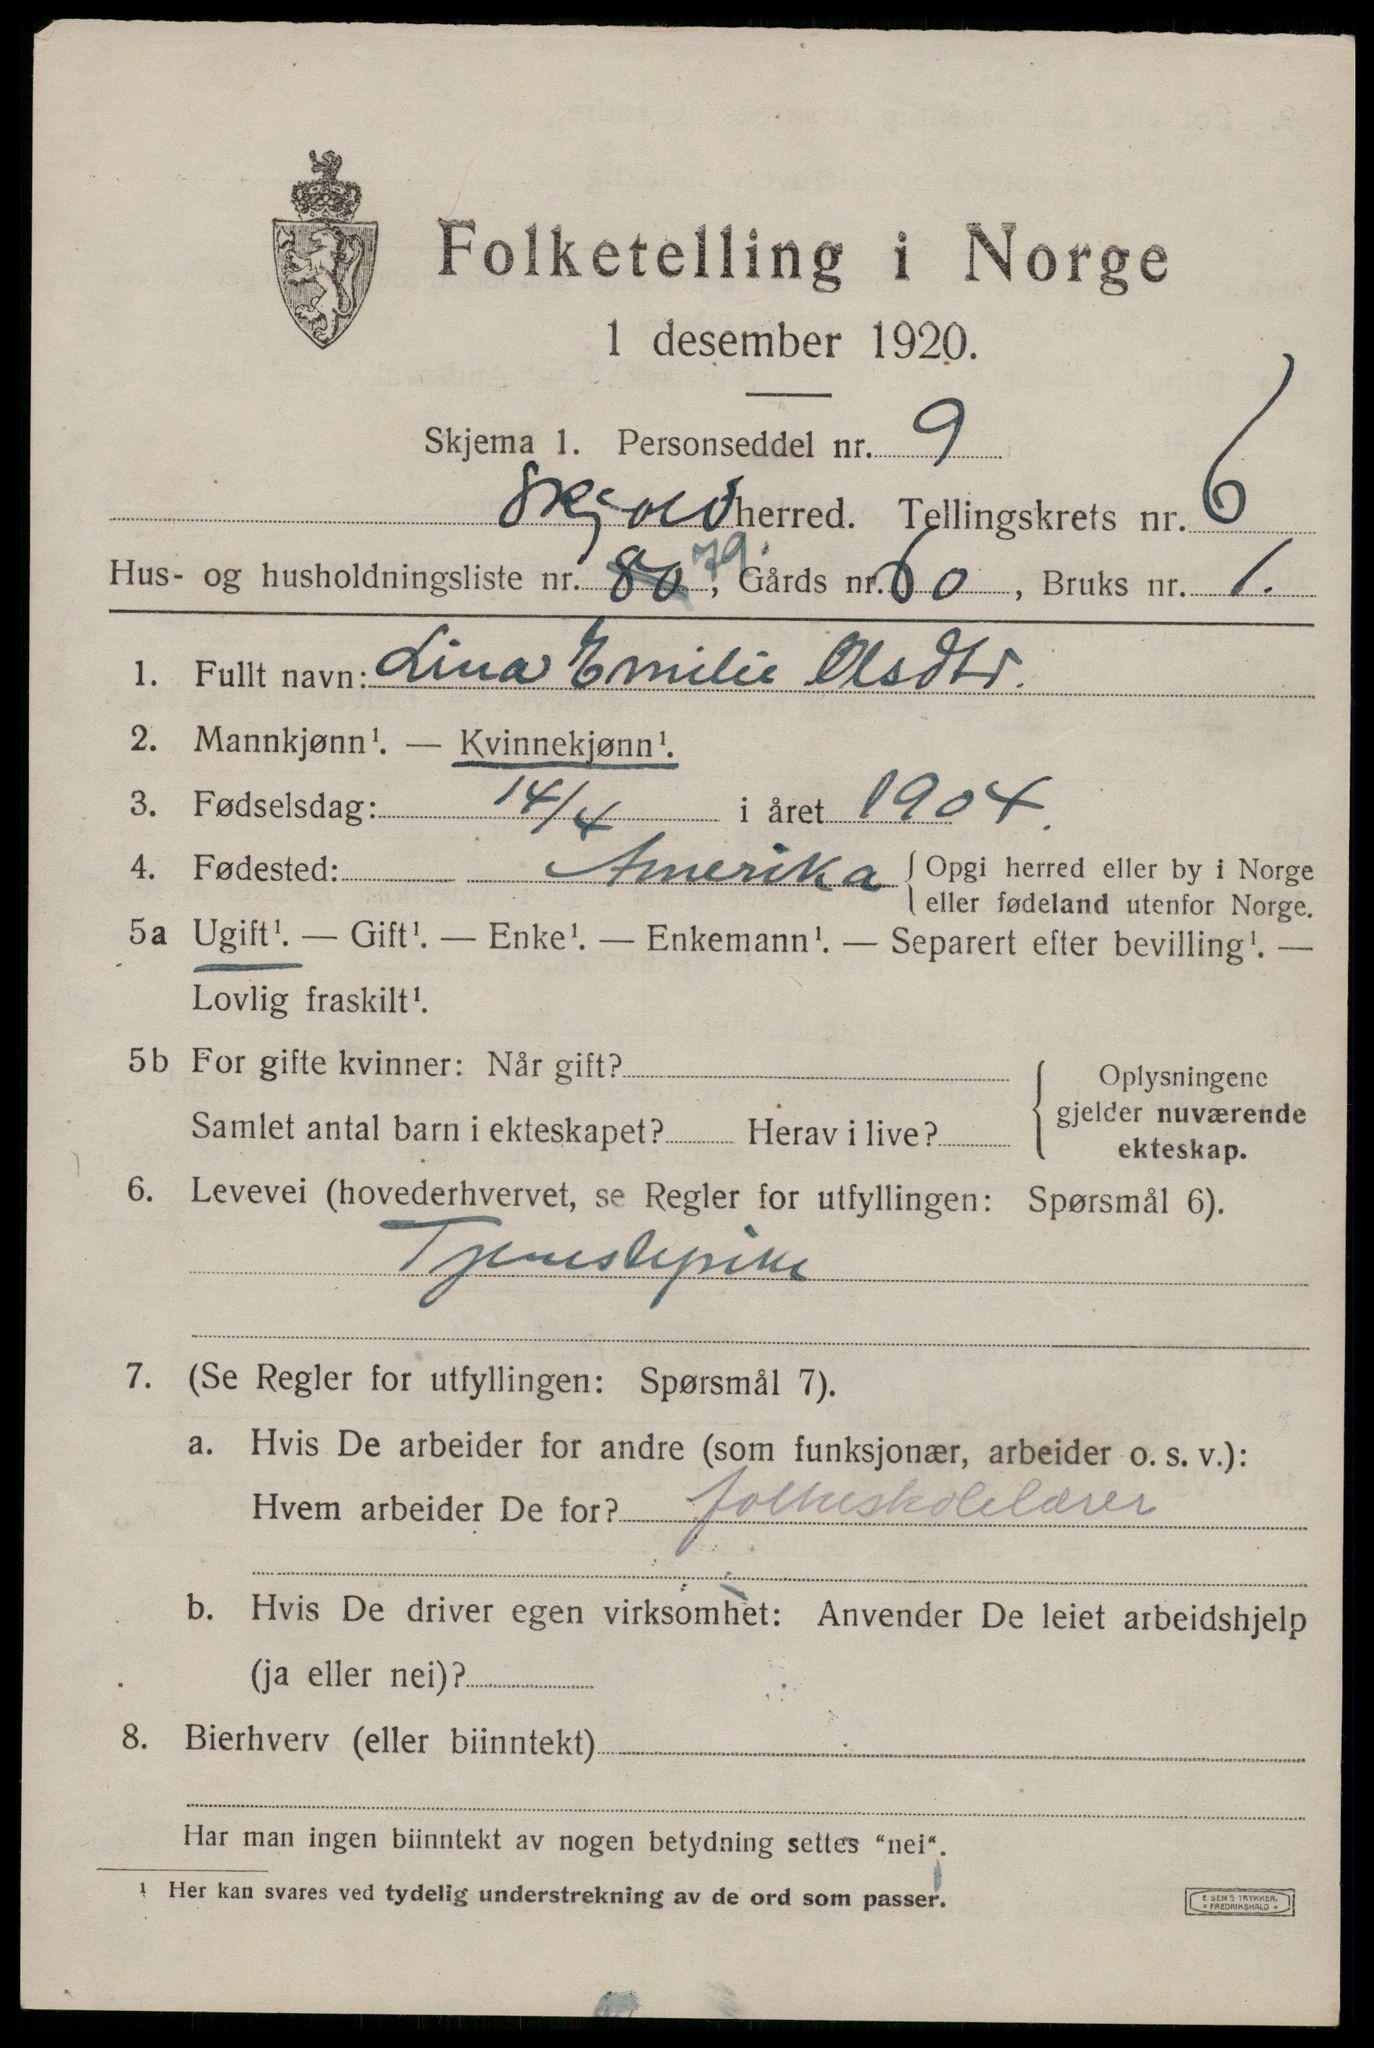 Folketelling i Norge
1 desember 1920.
Skjema 1. Personseddel nr. 9
Skjold herred. Tellingskrets nr. 6
Hus- og husholdningsliste nr. 80 79, Gårds nr. 60, Bruks nr. 1.
1. Fullt navn: Lina Emilie Olsdtr.
2. Mannkjønn¹. — Kvinnekjønn¹.
3. Fødselsdag: 14/4 i året 1904.
4. Fødested: Amerika { Opgi herred eller by i Norge
eller fødeland utenfor Norge.
5a Ugift¹. — Gift¹. — Enke¹. — Enkemann¹. — Separert efter bevilling¹. —
Lovlig fraskilt¹.
5b For gifte kvinner: Når gift?
Samlet antal barn i ekteskapet? Herav i live?
{ Oplysningene
gjelder nuværende
ekteskap.
6. Levevei (hovederhvervet, se Regler for utfyllingen: Spørsmål 6).
Tjenestepike
7. (Se Regler for utfyllingen: Spørsmål 7).
a. Hvis De arbeider for andre (som funksjonær, arbeider o. s. v.):
Hvem arbeider De for? folkeskolelærer
b. Hvis De driver egen virksomhet: Anvender De leiet arbeidshjelp
(ja eller nei)?
8. Bierhverv (eller biinntekt)
Har man ingen biinntekt av nogen betydning settes “nei“.
¹ Her kan svares ved tydelig understrekning av de ord som passer.
E. SEM'S TRYKKERI
* FREDRIKSHALD *